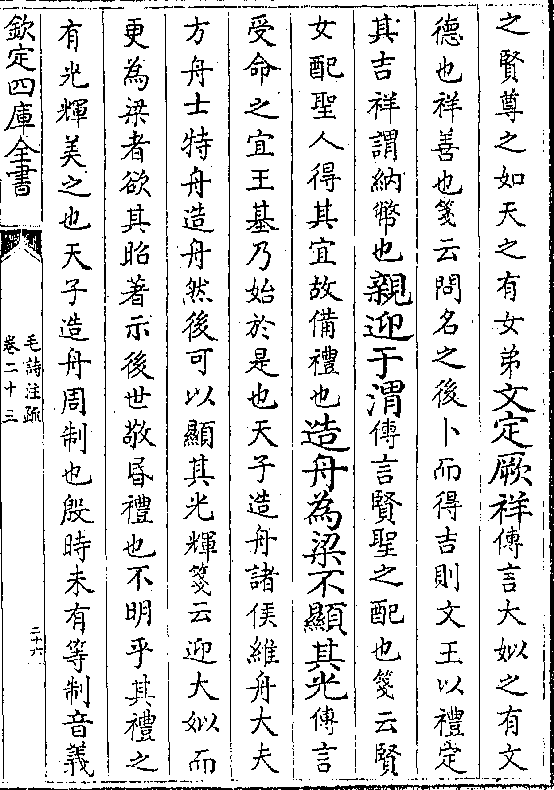 之賢尊之如天之有女弟文定厥祥傳言大姒之有文
德也祥善也箋云問名之後卜而得吉則文王以禮定
其吉祥謂納幣也親迎于渭傳言賢聖之配也箋云賢
女配聖人得其宜故備禮也造舟為梁不顯其光傳言
受命之宜王基乃始於是也天子造舟諸侯維舟大夫
方舟士特舟造舟然後可以顯其光輝箋云迎大姒而
更為梁者欲其昭著示後世敬昏禮也不明乎其禮之
有光輝美之也天子造舟周制也殷時未有等制音義
欽定四庫全書
毛詩注疏
卷二十三
二十六